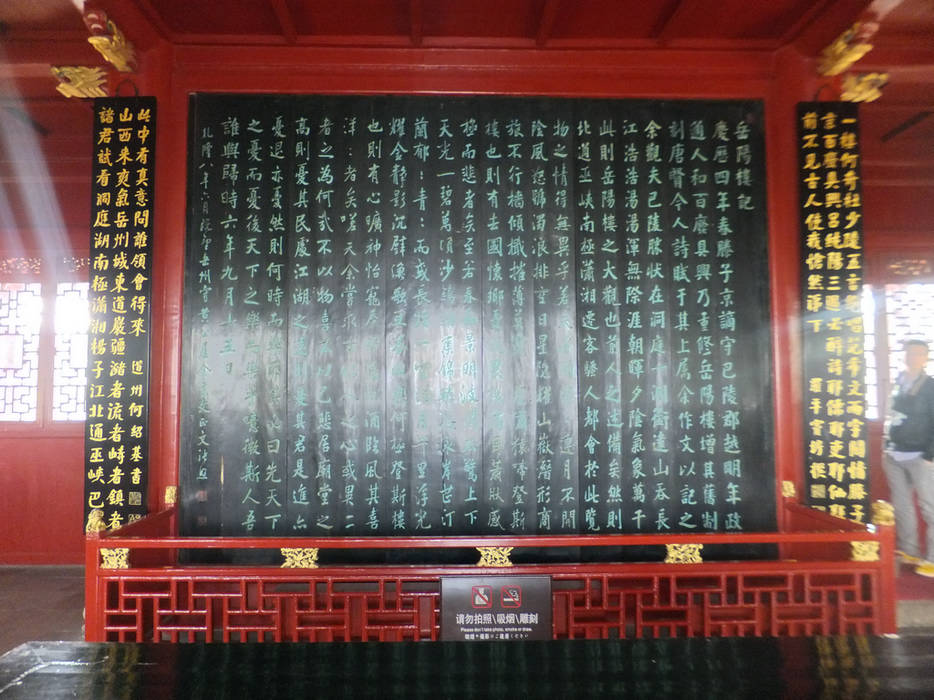 一樓何奇杜少陵五言絕唱范希文兩字關情滕子
京百廢具興呂純陽三過必醉詩耶儒耶吏耶仙耶
前不見古人使我愴然淚下
岳陽樓記
慶曆四年春滕子京謫守巴陵郡越明年政
通人和百廢具興乃重修岳陽樓增其舊制
刻唐賢今人詩賦于其上屬余作文以記之
余觀夫巴陵勝狀在洞庭一湖銜遠山吞長
江浩浩湯湯渾無際涯朝暉夕陰氣象萬千
此則岳陽樓之大觀也前人之述備矣然則
北通巫峽南極瀟湘遷客騷人都會於此覽
物之情得無異乎若夫 連月不開
陰風怒號濁浪排空日星隱耀山嶽潛形商
旅不行檣傾檝摧薄暮冥冥虎嘯猿啼登斯
樓也則有去國懷鄉憂讒畏譏滿目蕭然感
極而悲者矣至若春和景明波瀾不驚上下
天光一碧萬頃沙鷗翔集錦鱗游泳岸芷汀
蘭郁〻青〻而或長煙一空皓月千里浮光
耀金靜影沉璧漁歌互答此樂何極登斯樓
也則有心曠神怡寵辱 酒臨風其喜
洋〻者矣嗟夫余嘗求古仁人之心或異二
者之為何哉不以物喜不以己悲居廟堂之
高則憂其民處江湖之遠則憂其君是進亦
憂退亦憂然則何時而樂耶其必曰先天下
之憂而憂後天下之樂而樂乎噫微斯人吾
誰與歸時六年九月十五日
乾隆八年六月 岳州守黃
諸君試看洞庭湖南極瀟湘揚子江北通巫峽巴
山西來爽氣岳州城東道巖疆瀦者流者峙者鎮者
此中有真意問誰領會得來 道州何紹基書
请勿拍照\吸烟\雕刻
Please don't take photo, smoke or draw.